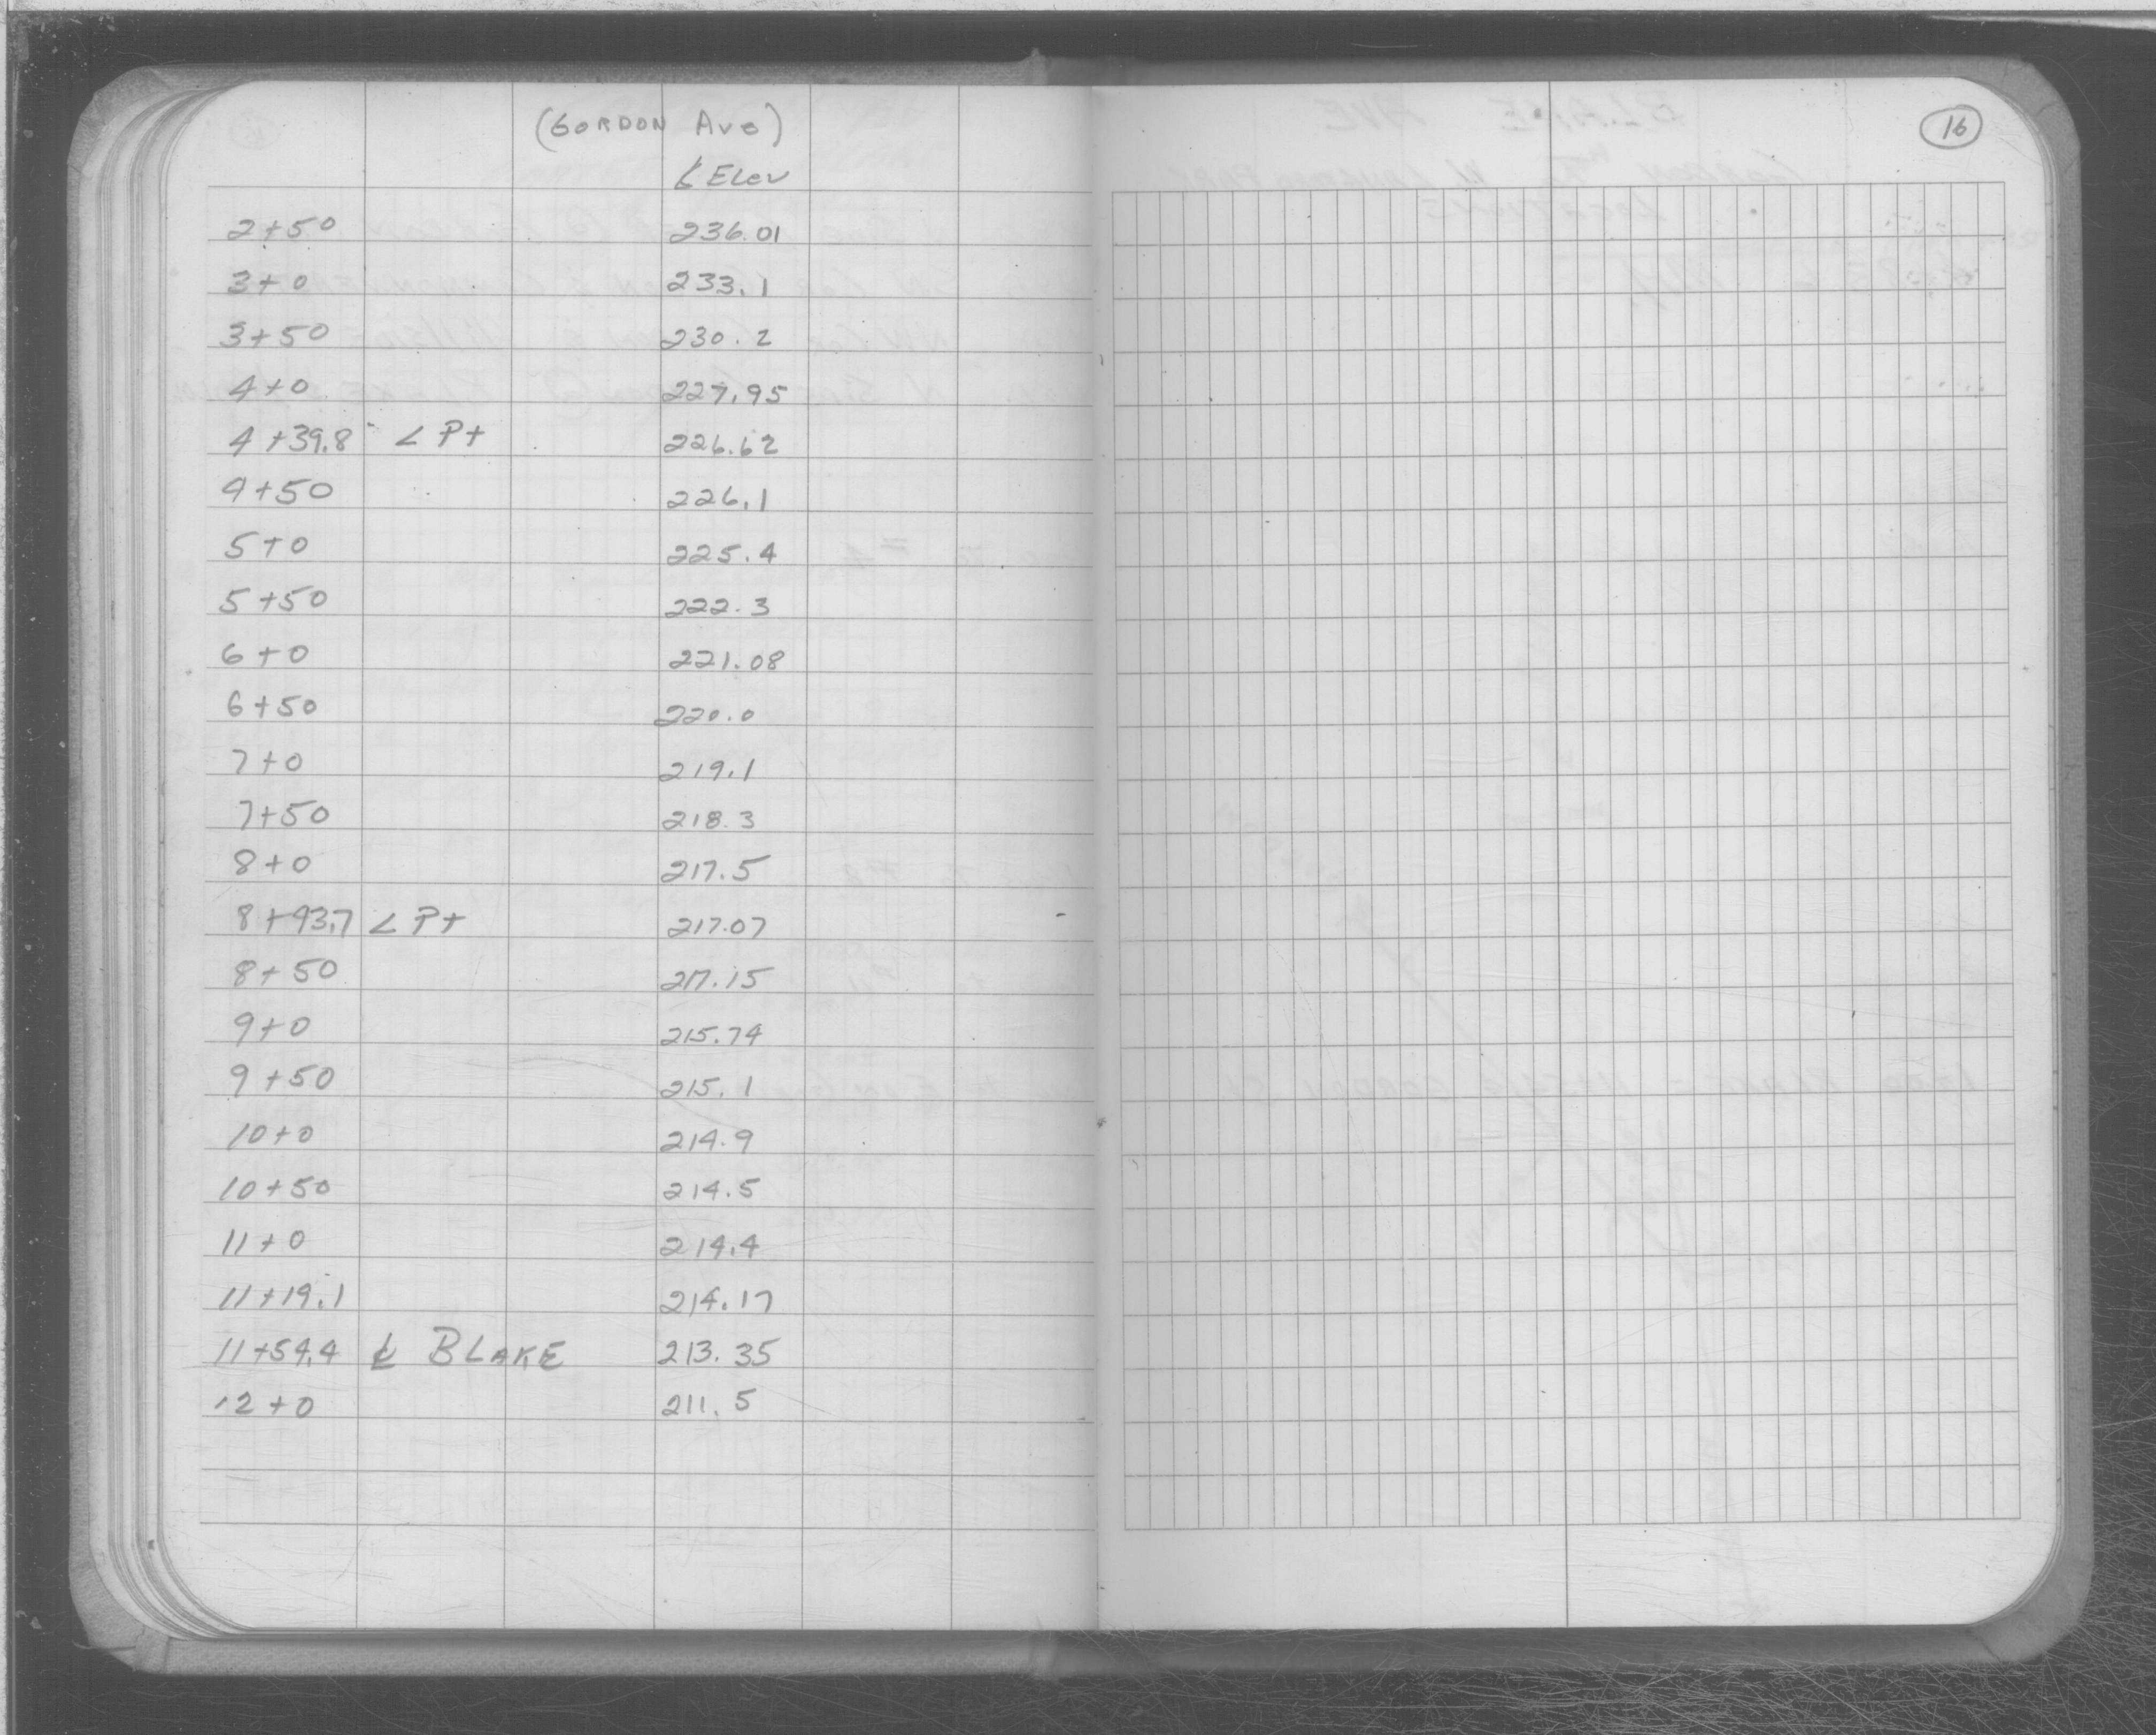 (GORDON Ave)
16
℄ Elev
2+50 236.01
3+0 233.1
3+50 230.2
4+0 227.95
4+39.8 ∠ Pt 226.62
4+50 226.1
5+0 225.4
5+50 222.3
6+0 221.08
6+50 220.0
7+0 219.1
7+50 218.3
8+0 217.5
8+43.7 ∠ Pt 217.07
8+50 217.15
9+0 215.74
9+50 215.1
10+0 214.9
10+50 214.5
11+0 214.4
11+19.1 214.17
11+54.4 ℄ BLAKE 213.35
12+0 211.5